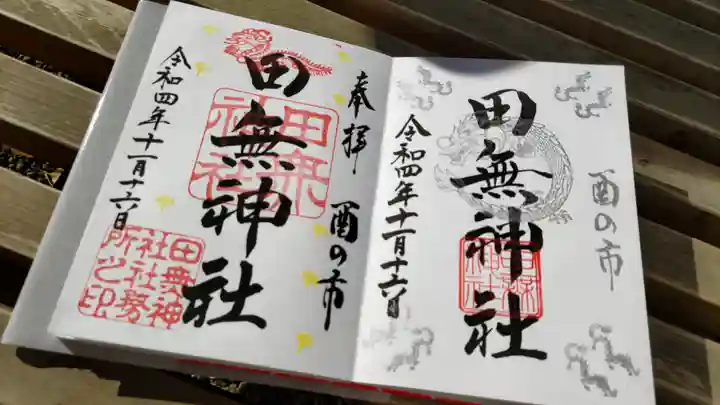 酉の市
田無神社
田無神社
令和四年十一月十六日
奉拝
酉の市
田無神社
田無神社
田無神社社務所之印
令和四年十一月十六日